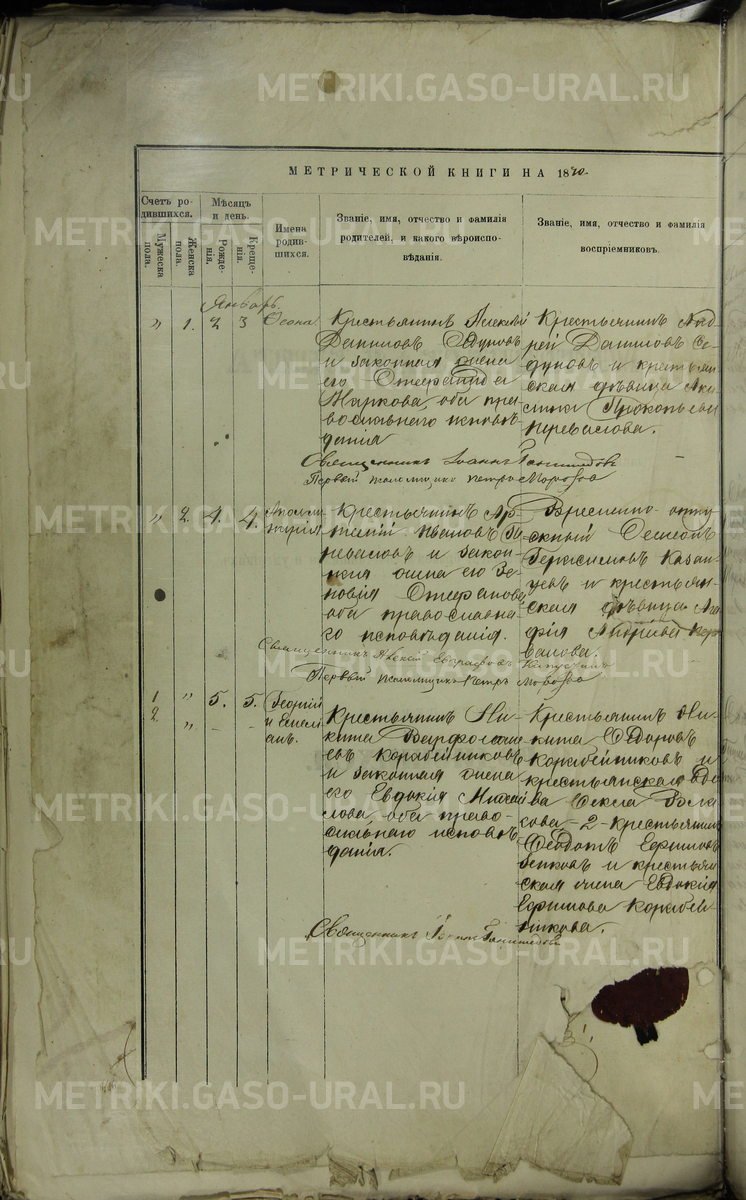 METRIKI.GASO-URAL.RU
МЕТРИЧЕСКОЙ КНИГИ НА 1870.
Счетъ ро-
дившихся.
Мужеска
пола.
Женска
пола.
Мѣсяцъ
и день.
Рожде-
нія.
Креще-
нія.
Имена
родив-
шихся.
Званіе, имя, отчество и фамилія
родителей, и какого вѣроиспо-
вѣданія.
Званіе, имя, отчество и фамилія
воспріемниковъ.
Январь.
" 1. 2 3
Крестьянинъ Алексѣй
Даниловъ
и законная жена
его
Маркова, оба пра
вославнаго исповѣ
данія
Крестьянинъ Анд
рей Даниловъ Ѳе
дуновъ и крестьян
ская дѣвица Аку
лина Прокопьева
Перевалова.
Священникъ Іоаннъ
Первый Псаломщикъ Петръ Морозов
" 2. 4. 4. Аполли
нарія
Крестьянинъ
Ивановъ Пе
реваловъ и закон
ная жена его Зе
новія Стефанова
оба православна
го исповѣданія.
Временно отпу
скный Семеонъ
Герасимовъ Казан
цевъ и крестьян
ская дѣвица Ага
фія Андреева Пере
валова.
Священникъ
Первый псаломщикъ Петръ Морозов
1 " 5. 5. Георгій
2. " - - и Емели
анъ.
Крестьянинъ Ни
кита Варфоломе
евъ Коробейниковъ
и законная жена
его Евдокія Михай
лова, оба право
славнаго исповѣ
данія.
Крестьянинъ Ни
кита Ѳедоровъ
Коробейниковъ и
крестьянская вдо
ва Ѳекла Вла
сова - 2 - крестьянинъ
Ѳеодотъ Ефимовъ
и крестьян
ская жена Евдокія
Ефимова Коробей
никова.
Священникъ Іоаннъ